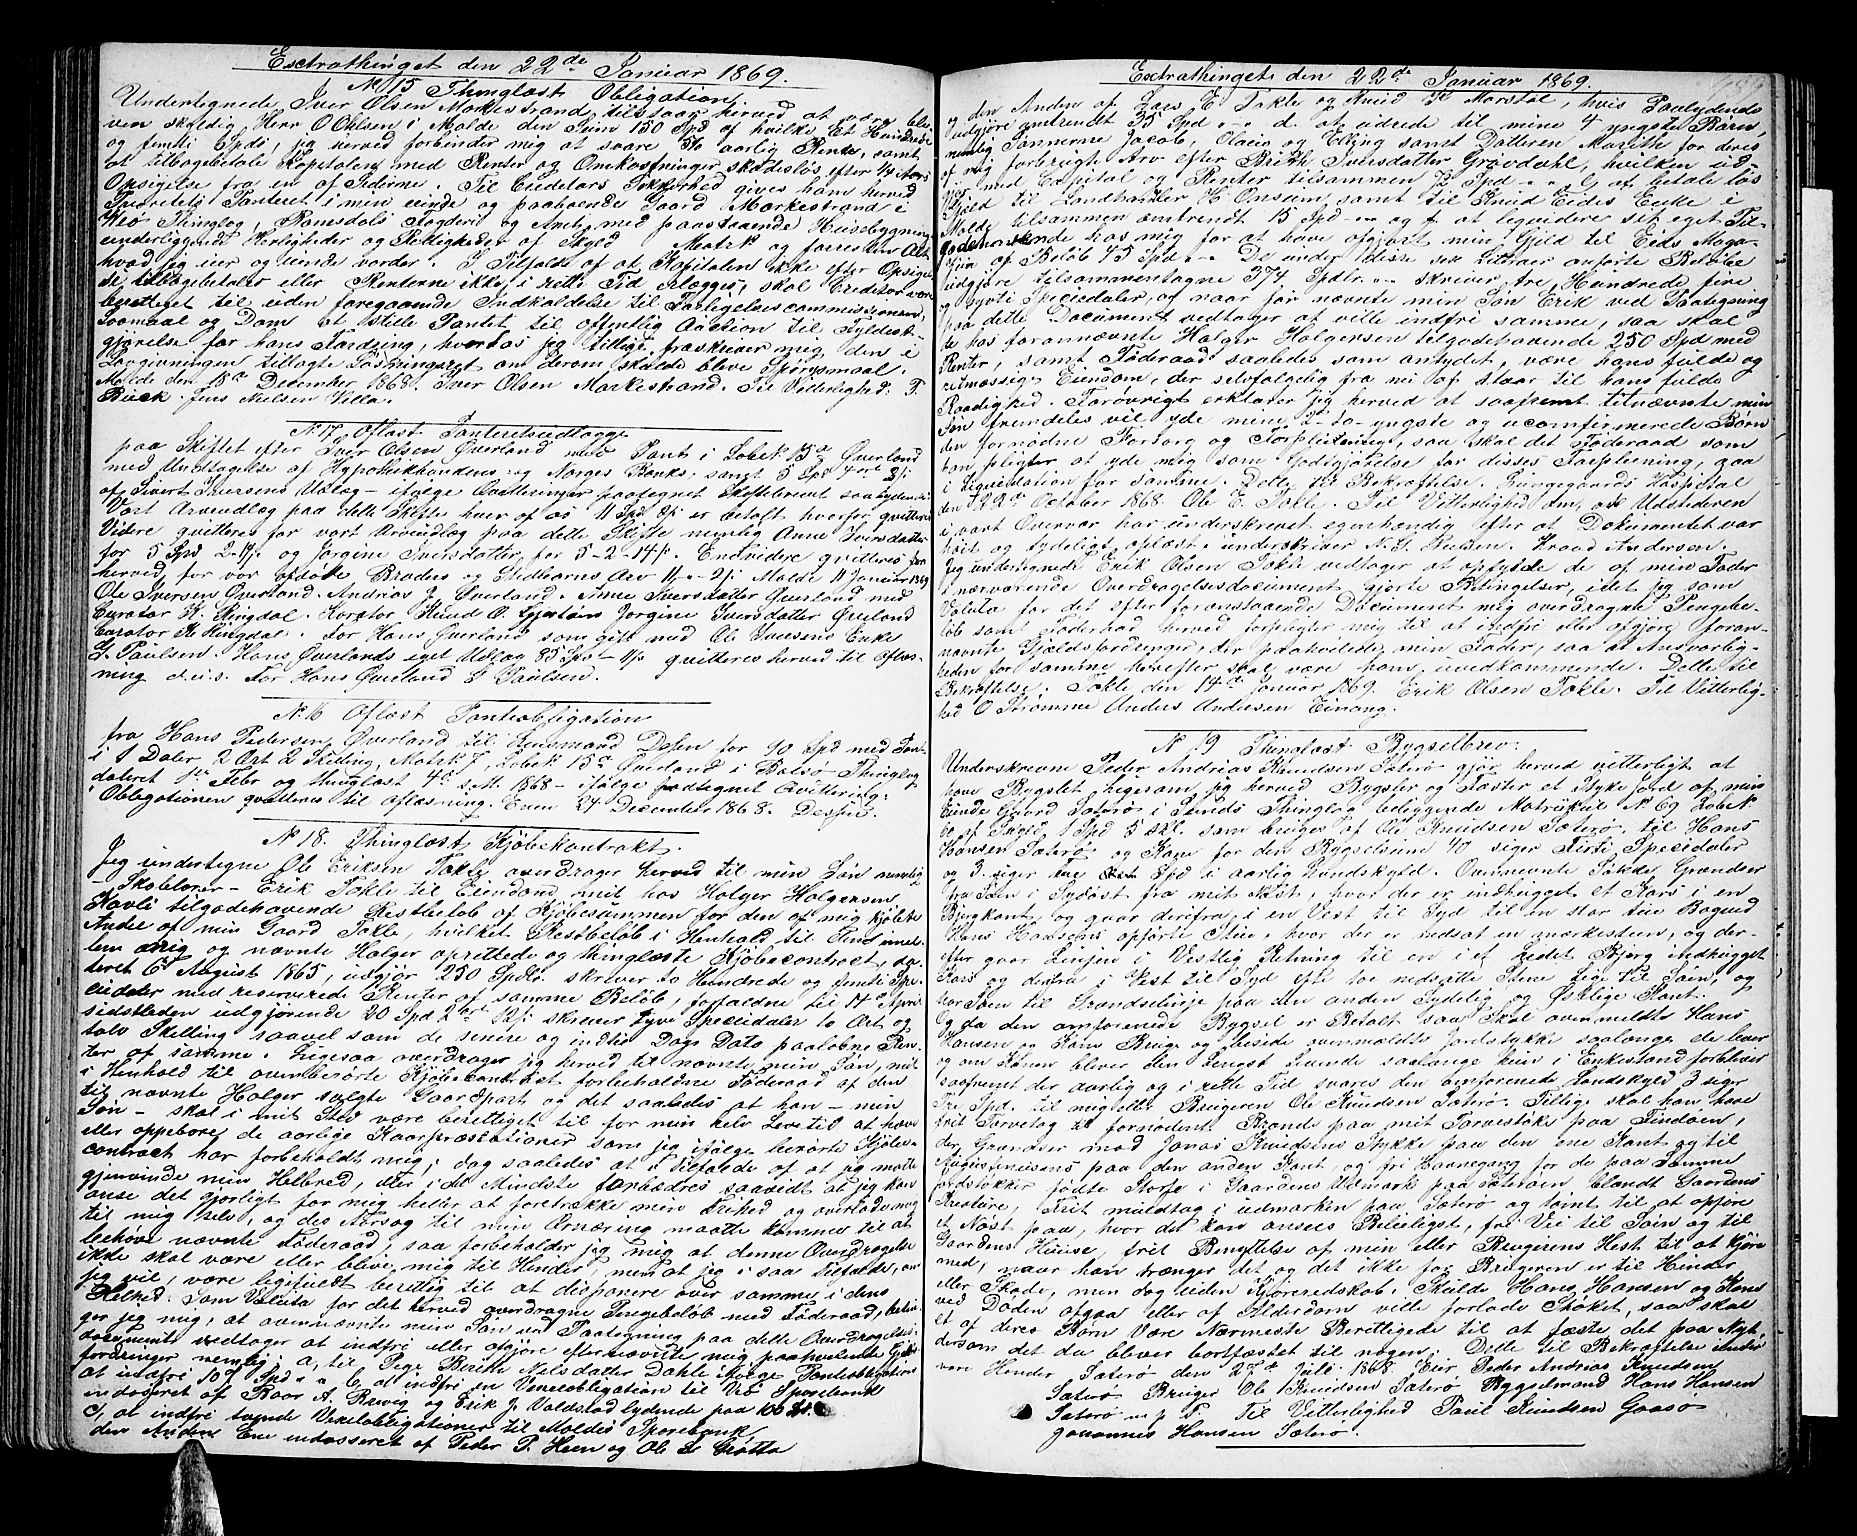 Extrathinget den 22de Januar 1869.
No 15 Thinglæst Obligation.
Undertegnede Iver Olsen Markestrand tilstaar herved at være ble-
ven skyldig Herr O Ohlsen i Molde den Sum 150 Spd af hvilke Et Hundrede
og femti Spd, jeg herved forbinder mig at svare aarlig Rente, samt
at tilbagebetale Kapitalen med Renter og Omkostninger skadesløs efter
Opsigelse fra en af Siderne. Til Creditors Sikkerhed gives ham herved
Panteret i min eiende og paaboende Gaard Markestrand i
Veø Thinglag, Romsdals Fogderi og Amt, med paastaaende Husebygninger
underliggende Herligheder og Rettigheder af Skyld Matrk og forresten Alt
hvad jeg eier og eiende vorder. I Tilfælde af at Kapitalen ikke efter Opsigelse
tilbagebetales eller Renterne ikke i rette Tid erlægges, skal Creditor være
berettiget til uden foregaaende Indkaldelse til Forligelsescommissionen,
Lovmaal og Dom at stille Pantet til offentlig Auction til Fyldest-
gjørelse for hans Fordring, hvorhos jeg tillige fraskriver mig den i
Lovgivningen tillagte Løsningsret om derom skulde blive Spørgsmaal.
Molde den 18de December 1868. Iver Olsen Markestrand. Til Vitterlighed: F.
Buck. Jens Nielsen Villa.
No 17 Aflæst Panteretsudlæg
paa Skiftet efter Iver Olsen Øverland med Pant i Løbek 15a Øverland
med Undtagelse af Hypothekbankens og Norges Banks, samt 5 Spd
af Sivert Iversens Udlæg – ifølge Qvitteringer paategnet Skiftebrevet saalydende:
Vort Arveudlæg paa dette Skifte hver af os 11 Spd er betalt hvorfor qvitteres
Videre qvitteres for vort Arveudlæg paa dette Skifte nemlig Anne Iversdatter
for 5 Spd 2-14 og Jørgine Iversdatter for 5-2-14. Endvidere qvitteres
herved for vor afdøde Broders og Stedbarns Arv Molde 11 Januar 1869
Ole Iversen Øverland. Andrias J. Øverland. Anne Iversdatter Øverland med
Curator K. Ringdal. Kurator Knud O. Jørgine Iversdatter Øverland
Curator K Ringdal. For Hans Øverland som gift med Ole Iversens Enke
G. Paulsen. Hans Øverlands eget Udlæg 85 Spd qvitteres herved til Aflæs-
ning d.u.s. For Hans Øverland G Paulsen.
No 16 Aflæst Panteobligation
fra Hans Pedersen Øverland til Lensmand Dessen for 90 Spd med Pant
i 1 Daler 2 Ort 2 Skilling, Matrk 7, Løbek 15a Øverland i Bolsø Thinglag
dateret 1ste Febr og thinglæst 4de s.M. 1868 – ifølge paategnet Qvittering:
"Obligationen qvitteres til Aflæsning. Even 24 December 1868. Dessen.
No 18. Thinglæst Kjøbekontrakt.
Jeg undertegne Ole Eriksen Takle overdrager herved til min Søn nemlig
– Skolelærer – Erik Takle til Eiendom mit hos Holger Holgersen
Havli tilgodehavende Restbeløb af Kjøbesummen for den af mig kjøbte
Andel af min Gaard Takle, hvilket Restbeløb i Henhold til den imel-
lem mig og nævnte Holger oprettede og thinglæste Kjøbecontract, da-
teret 6te August 1865, udgjør 250 Spdlr. skriver to Hundrede og femti Spe-
cieder med reserverede Renter af samme Beløb, forfaldne til 14de April
sidstleden udgjørende 20 Spd 2 Ort 12 s skriver tyve Speciedaler to Ort og
tolv Skilling saavel som de senere og indtil Dags Dato paaløbne Ren-
ter af samme. Ligesaa overdrager jeg herved til nævnte min Søn, mit
i Henhold til ovenberørte Kjøbecontract forbeholdne Føderaad af den
til nævnte Holger solgte Gaardpart og det saaledes at han – min
Søn – skal i mit Sted være berettiget til for min hele Levetid at hæve
eller oppebære de aarlige Kaarpræstationer som jeg ifølge berørte Kjøbe-
contract har forbeholdt mig; dog saaledes at i Tilfælde af at jeg maatte
gjenvinde min Helbred, eller i det Mindste forbedres saavidt at jeg kan
anse det gjørligt for mig heller at foretrække min Frihed og overlades mig
til mig selv, og des Aarsag til min Ernæring maatte komme til at
behøve nævnte Føderaad, saa forbeholder jeg mig at denne Overdragelse
ikke skal være eller blive mig til Hinder, men at jeg i saa Tilfælde, om
jeg vil, være ligefuldt berettig til at disponere over samme i dens
Helhed. Som Valuta for det herved overdragne Pengebeløb med Føderaad, betin-
ger jeg mig, at ovennævnte min Søn ved Paategning paa dette Overdragelses-
document vedtager at indfri eller afgjøre efternævnte mig paahvilende Gjælds-
fordringer nemlig: a, til Pige Berith Nielsdatter Dahle ifølge Panteobligation
at indfri 107 Spd " " b, at indfri en Vexelobligation til Veø Sparebank
indosseret af Roar A. Rørvig og Erik J. Voldstad lydende paa 100 Spd.
c, at indfri tvende Vexelobligationer til Molde Sparebank
den Anden Ene indosseret af Peder P. Heen og Ole Grøtta
Extrathinget den 22de Januar 1869.
og den Anden af Lars E. Takle og Knud K Marstøl, hvis Paalydende
udgjøre omtrendt 35 Spd " " d. at udrede til mine 4 yngste Børn,
nemlig Sønnerne Jacob, Olaus og Elling samt Datteren Marith for deres
af mig forbrugte Arv efter Brith Iversdatter Grøvdahl, hvilken ud-
gjør med Capital og Renter tilsammen 72 Spd " " e, at betale
Gjæld til Landhandler H Onsum, samt til Knud Eides Enke i
Molde tilsammen omtrendt 15 Spd " " og f at leqvidere sit eget Til-
godehavende hos mig for at have afgjort min Gjæld til Eids Maga-
zin af Beløb 45 Spd " " De under disse sex Literaer anførte Beløbe
udgjøre tilsammentagne 374 Spdlr. " " skriver tre Hundrede fire
og syvti Speciedaler, og naar før nævnte min Søn Erik ved Paategning
paa dette Document vedtager at ville indfri samme, saa skal
de hos forannævnte Holger Holgersen tilgodehavende 250 Spd med
Renter, samt Føderaad saaledes som antydet, være hans fulde og
retmæssige Eiendom, der selvfølgelig fra nu af staar til hans fulde
Raadighed. Forøvrigt erklærer jeg herved at saafremt titnævnte min
Søn fremdeles vil yde mine 2-to-yngste og uconfirmerede Børn
den fornødne Forsorg og Forpleining, saa skal det Føderaad som
han pligter at yde mig som Godtgjørelse for disses Forpleining, gaa
i Liqvidation for samme. Dette til Bekræftelse. Lungegaards Hospital
den 22de October 1868. Ole E. Takle. Til Vitterlighed om, at Udstederen
i vort Overvær har underskrevet egenhændig efter at Dokumentet var
høit og tydeligt oplæst, underskriver N. G. Nielsen. Knud Andersen.
Jeg undertegnede Erik Olsen Takle vedtager at opfylde de af min Fader
i nærværende Overdragelsesdocument gjorte Betingelser, idet jeg som
Valuta for det efter foranstaaende Document mig overdragne Pengebe-
løb samt Føderaad herved forpligter mig til at indfri eller afgjøre foran-
nævnte Gjældsfordringer, der paahvilede min Fader, saa at Ansvarlig-
heden for samme herefter skal være ham uvedkommende. Dette til
Bekræftelse. Takle den 14de Januar 1869. Erik Olsen Takle. Til Vitterlig-
hed O Strømme Anders Andersen Einang.
No 19 Thinglæst Bygselbrev:
Underskrevne Peder Andrias Knudsen Sæterø gjør herved vitterligt at
have Bygslet ligesom jeg herved Bygsler og Fæster et Stykke Jord af min
Eiende Gaard Sæterø i Sunds Thinglag beliggende Matrikul No 69 Løbek
69 af Skyld 1 Spd 5 skl. som bruges af Ole Knudsen Sæterø, til Hans
Hansen Sæterø og Kone for den Bygselsum 40 siger Firti Speciedaler
og 3 siger tre Spd i aarlig Landskyld. Ovennævnte Stykke Grændser
fra Søen i Sydøst fra mit Nøst, hvor der er indhugget et Kors i en
Bjergkant, og gaar derifra i en Vest til Syd til en stor Sten Bagved
Hans Hansens opførte Stue, hvor der er nedsat en mærkesteen, og der-
efter gaar Linjen i Vestlig Retning til en i et Bjerg indhugget
Kors og derfra i Vest til Syd efter toe nedsatte Stene lige til Søen, og
har Søen til Grændselinje paa den anden Sydelig og Østlige Kant.
Og da den omforenede Bygsel er Betalt saa skal ovenmeldte Hans
Hansen og Kone Bruge og besidde ovenmeldte Jordstykke saalænge de lever
og om Konen bliver den Længst levende saalænge hun i Enkestand forbliver
saafremt der aarlig og i rette Tid svares den omforenede Landskyld 3 siger
Tre Spd. til mig eller Brugeren Ole Knudsen Sæterø. Tillige skal han have
frit Torvetag til fornøden Brænde paa mit Torvestøke paa Sindøen,
der Grændser med Jonas Knudsens Stykke paa den ene Kant og til
Augustinusens paa den anden Kant, og fri Havnegang for de paa Samme
Jordstykke fødte Storfe i Gaardens Udmark paa Sæterøen blandt Gaardens
Kreature, Frit muldtag i udmarken paa Sæterø og tomt til at opføre
et Nøst paa, hvor det kan ansees Beleiligst, fri Vei til Søen og til
Gaardens Huuse, frit Benyttelse af min eller Brugerens Hest til at kjøre
med, naar han trænger det og det ikke for Brugeren er til Hinder
eller Skade, men dog uden Kjøreredskab. Skulde Hans Hansen og Kone
ved Døden afgaa eller af Alderdom ville forlade Støket, saa skal
et af deres Børn Være Nærmeste Berettigede til at fæste det paa Nyt,
dersom det da bliver bortfæstet til nogen. Dette til Bekræftelse under
vore Hender Sæterø den 27de Juli 1868 Eier Peder Andrias Knudsen
Sæterø Bruger Ole Knudsen Sæterø Bygselmand Hans Hansen
Sæterø m. p. P. Til Vitterlighed Paul Knudsen Gaasø
Johannes Hansen Sæterø.